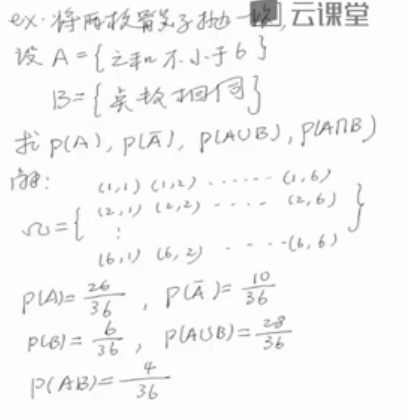 ex. 将两枚骰子抛一次, 云课堂
设 A={之和不小于6}
B={点数相同}
求 P(A), P(Ā), P(A∪B), P(A∩B)
解:
(1,1) (1,2) ...... (1,6)
Ω={ (2,1) (2,2) .... (2,6) }
⋮
(6,1) (6,2) - - - -(6,6)
P(A)=26/36 , P(Ā)=10/36
P(B)=6/36 , P(A∪B)=28/36
P(AB)=4/36